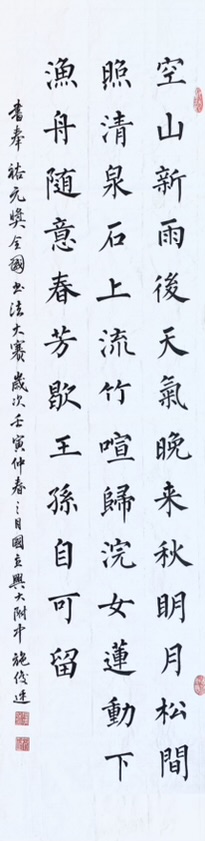 空山新雨後天氣晚来秋明月松間
照清泉石上流竹喧歸浣女蓮動下
漁舟随意春芳歇王孫自可留
書奉 裕元獎全國書法大賽歲次壬寅仲春之月國立興大附中 施俊